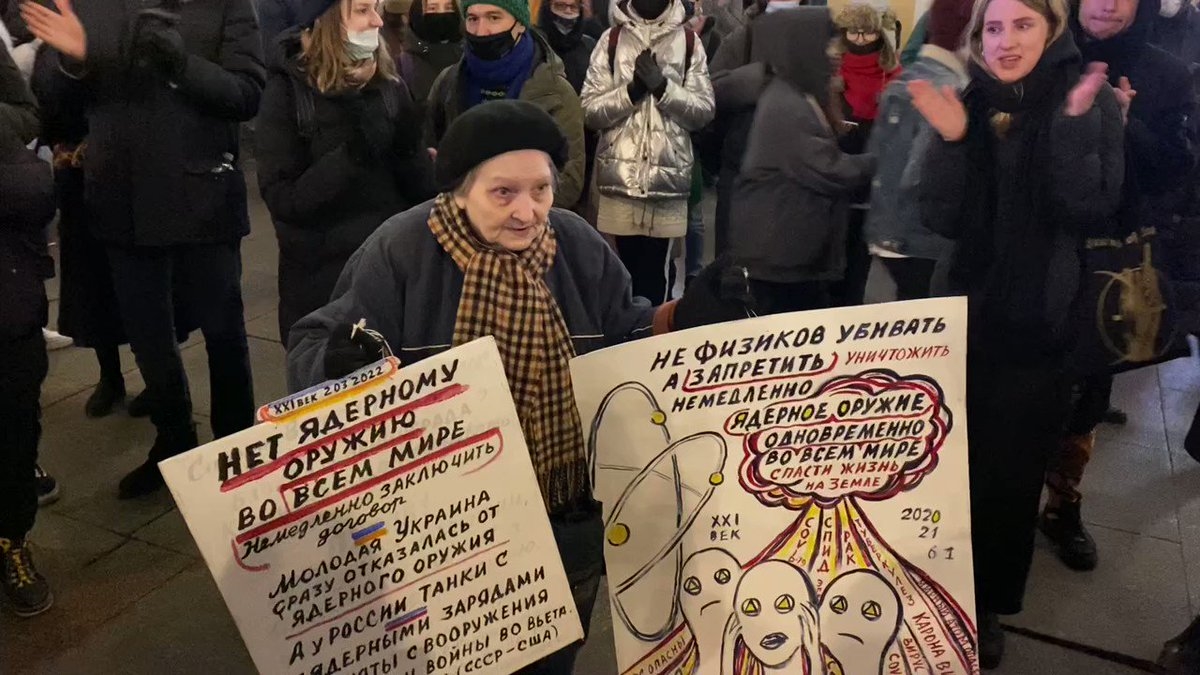 XXI ВЕК 2 03 2022
НЕТ ЯДЕРНОМУ
ОРУЖИЮ
ВО ВСЕМ МИРЕ
НЕМЕДЛЕННО ЗАКЛЮЧИТЬ
ДОГОВОР
МОЛОДАЯ УКРАИНА
СРАЗУ ОТКАЗАЛАСЬ ОТ
ЯДЕРНОГО ОРУЖИЯ
А У РОССИИ ТАНКИ С
ЯДЕРНЫМИ ЗАРЯДАМИ
С ВООРУЖЕНИЯ
ВОЙНЫ ВО ВЬЕТ.
(СССР-США)
НЕ ФИЗИКОВ УБИВАТЬ
А ЗАПРЕТИТЬ УНИЧТОЖИТЬ
НЕМЕДЛЕННО
ЯДЕРНОЕ ОРУЖИЕ
ОДНОВРЕМЕННО
ВО ВСЕМ МИРЕ
СПАСТИ ЖИЗНЬ
НА ЗЕМЛЕ
XXI
ВЕК
СПИД
РАК
2020
21
КАРОНА
ВИРУС